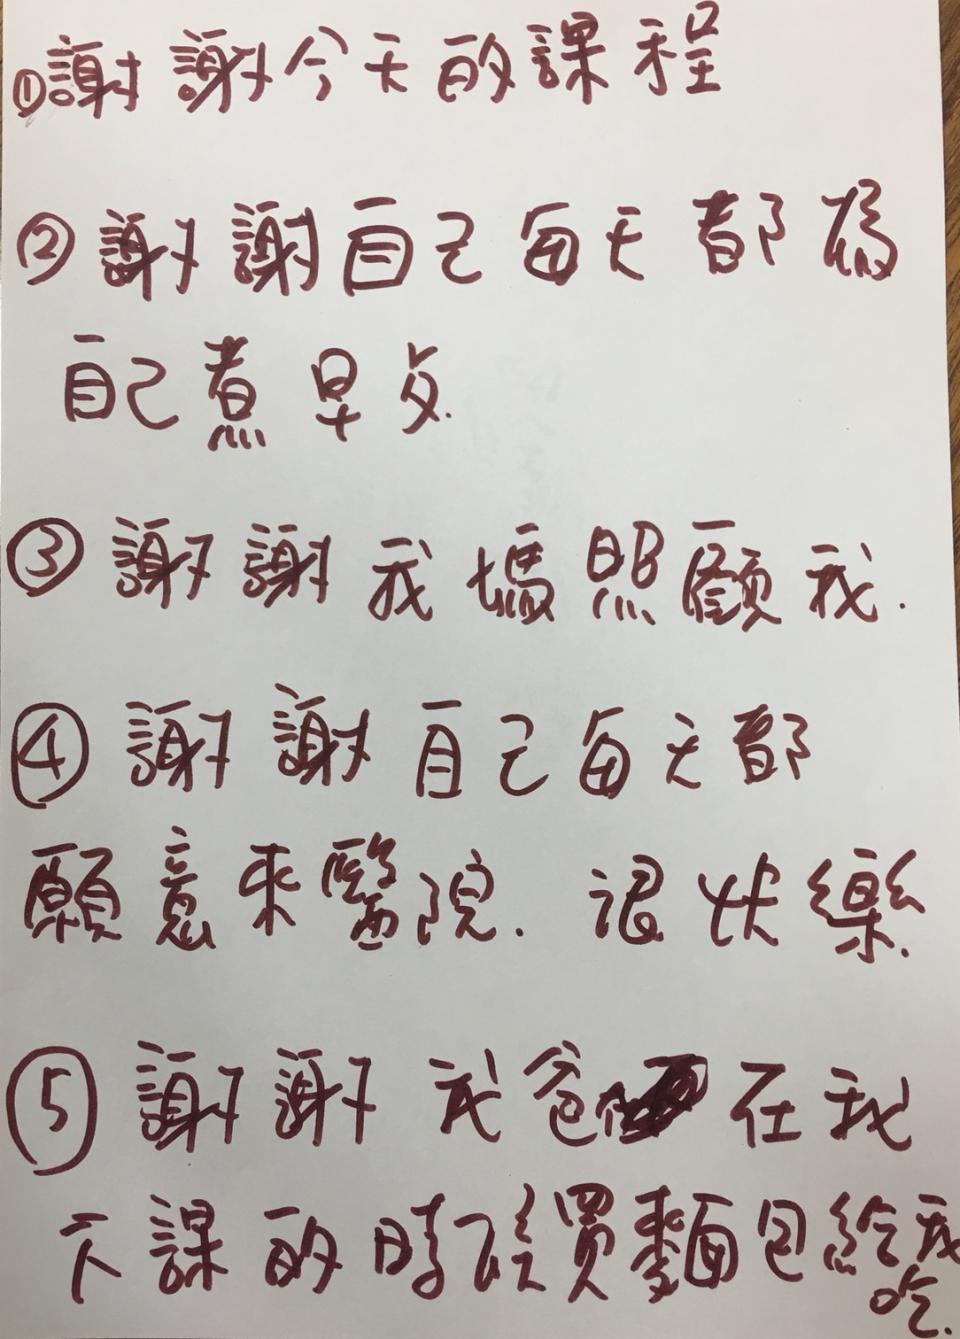 ①謝謝今天的課程
②謝謝自己每天都為
自己煮早夕.
③謝謝我媽照顧我.
④謝謝自己每天都
願意來醫院.很快樂.
⑤謝謝我爸在我
下課的時候買麵包給我
吃.